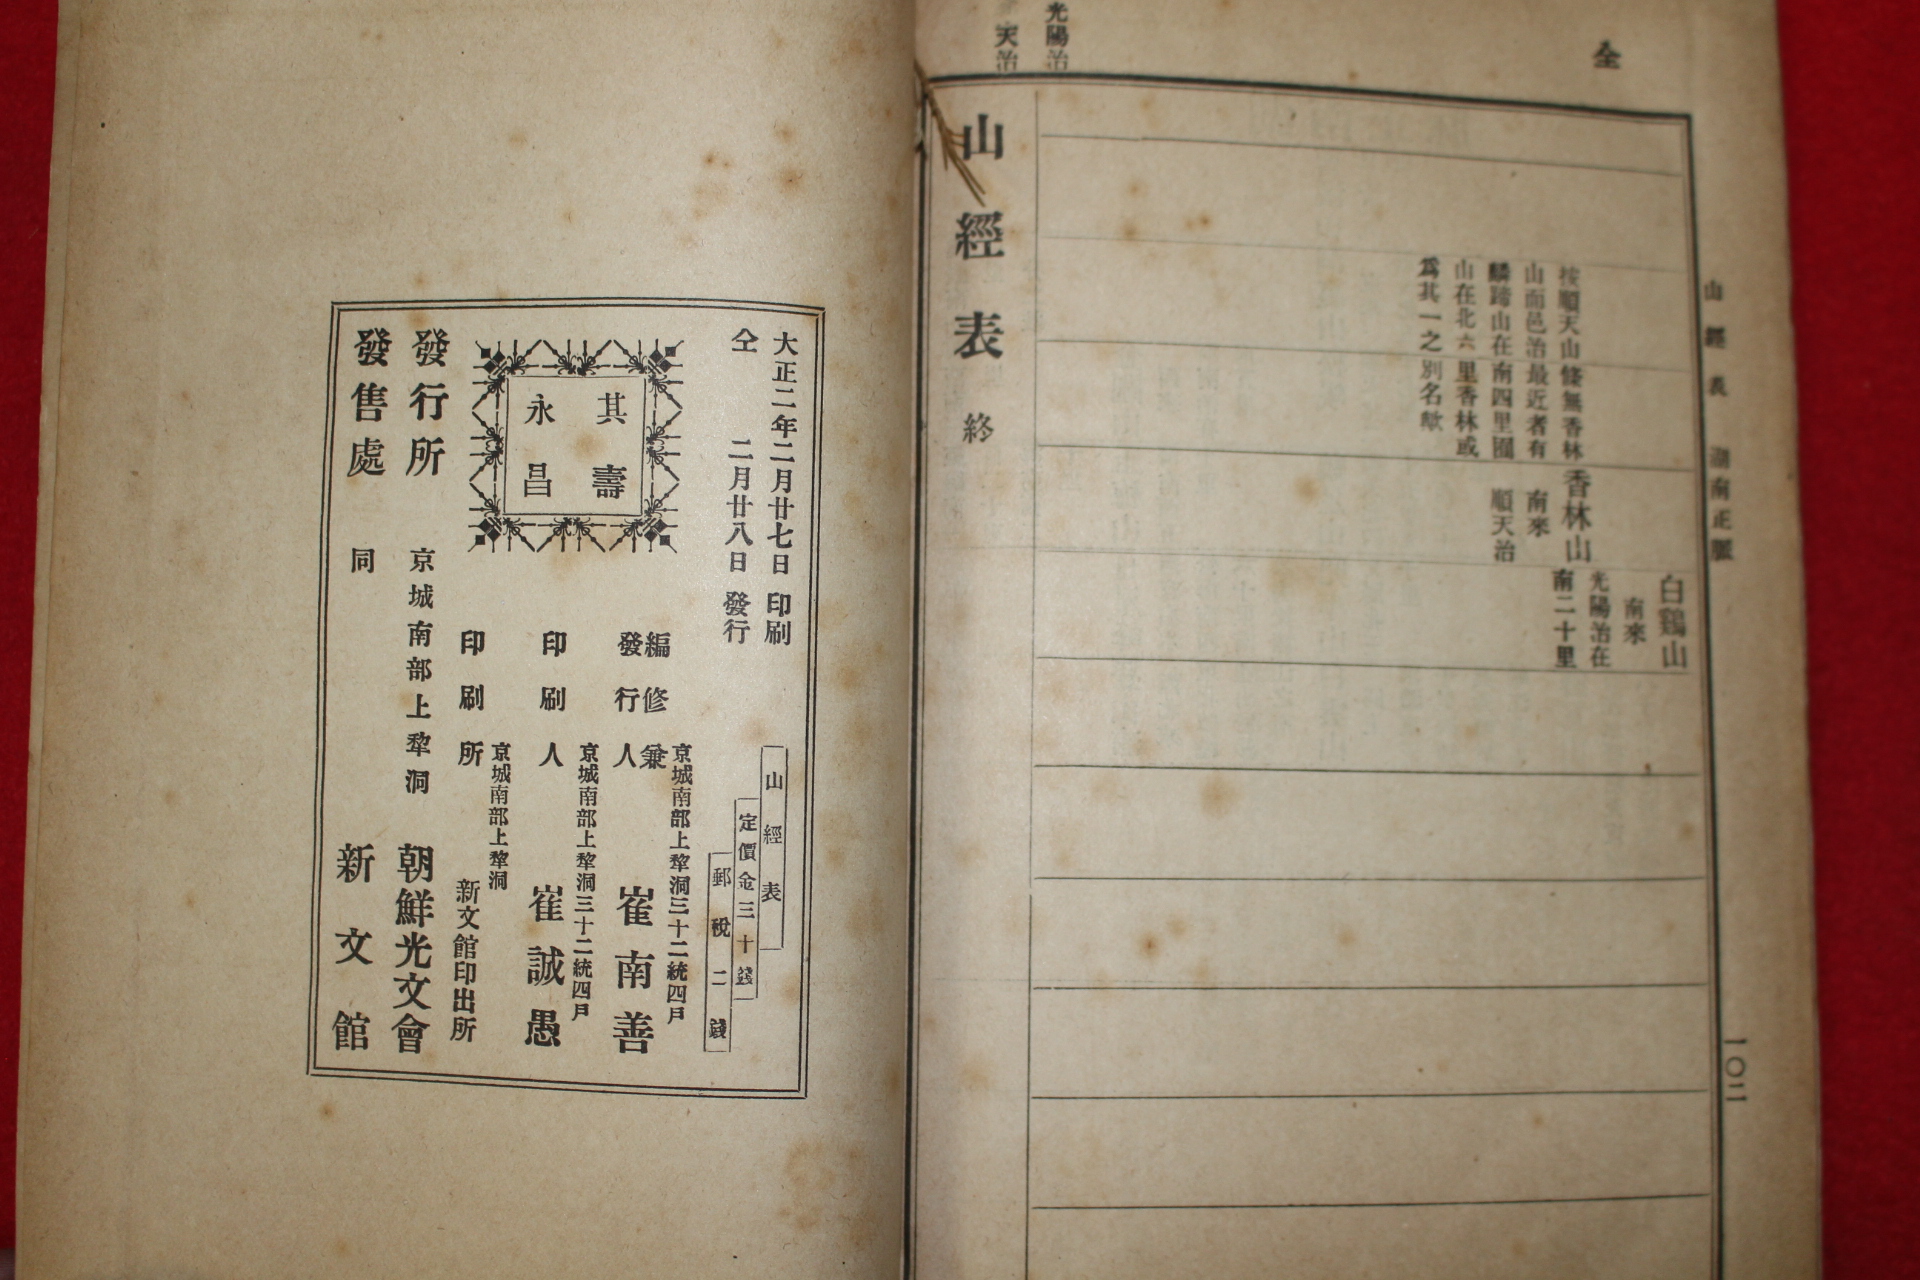 全
光陽治
天治
山經表
湖南正脈
一〇二
白鷄山
南來
光陽治在
南二十里
香林山
南來
順天治
按順天山條無香林
山而邑治最近者有
麟蹄山在南四里圓
山在北六里香林或
爲其一之別名歟
山經表終
大正二年二月廿七日印刷
仝二月廿八日發行
山經表
定價金三十錢
郵稅二錢
其壽
永昌
編修兼
發行人
京城南部上犂洞三十二統四戶
崔南善
印刷人
京城南部上犂洞三十二統四戶
崔誠愚
印刷所
京城南部上犂洞
新文館印出所
發行所 京城南部上犂洞 朝鮮光文會
發售處 同 新文館